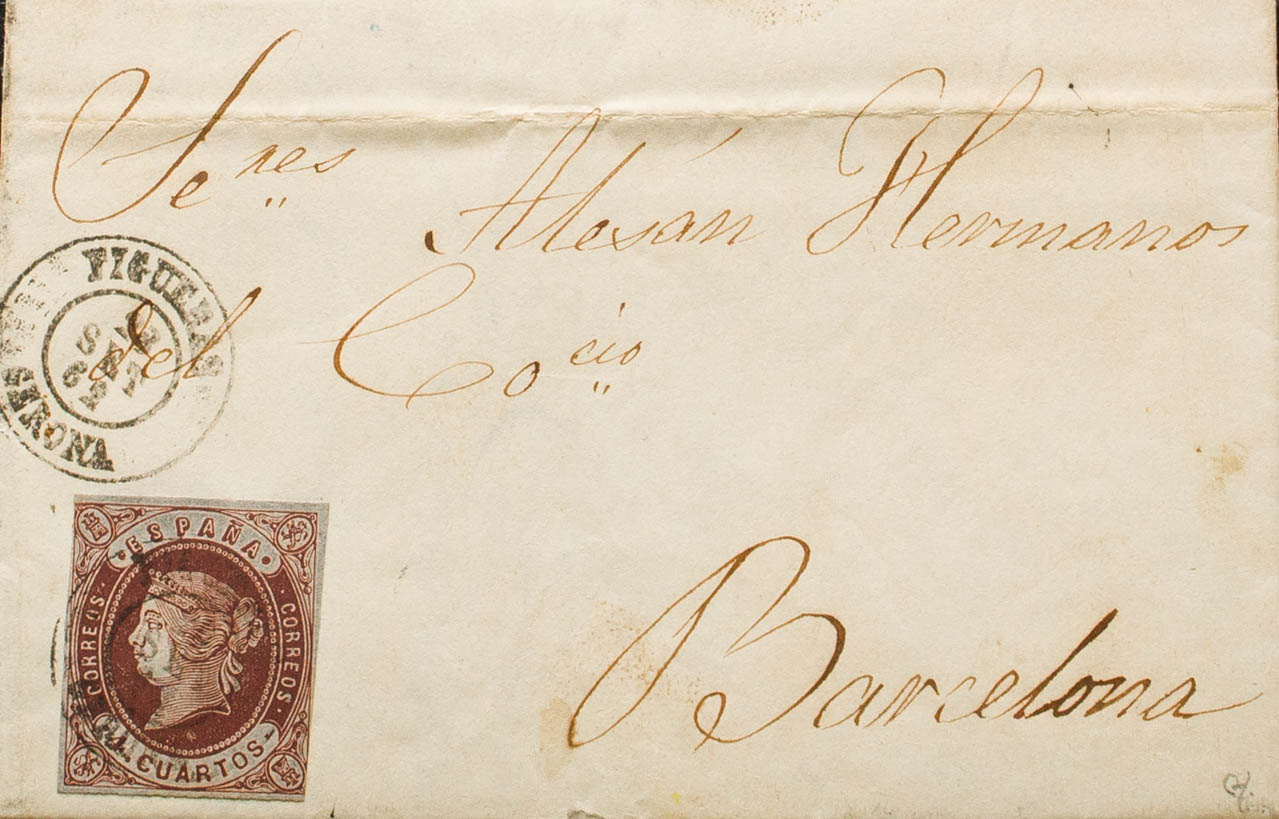 Se.res Alesán Hermanos
del Co.cio
Barcelona
FIGUERAS
SET
62
GERONA
ESPAÑA
CORREOS
CORREOS
CUARTOS